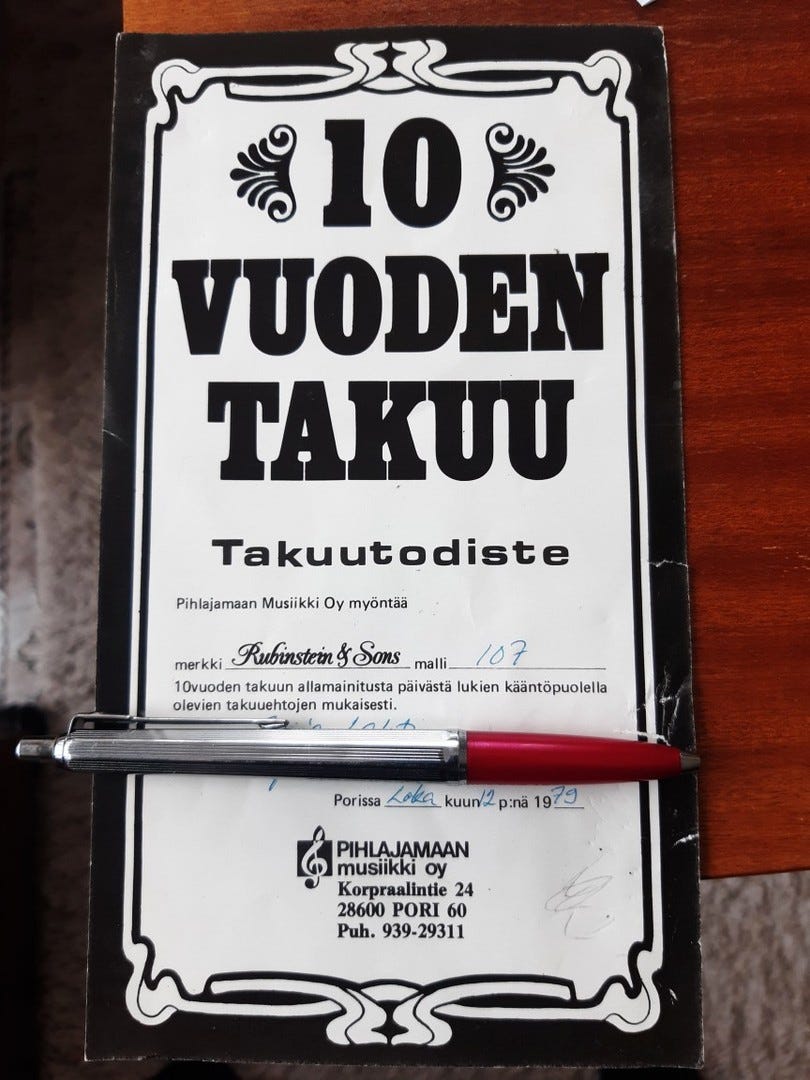 10
VUODEN
TAKUU
Takuutodiste
Pihlajamaan Musiikki Oy myöntää
merkki Rubinstein & Sons malli 107
10vuoden takuun allamainitusta päivästä lukien kääntöpuolella
olevien takuuehtojen mukaisesti.
Porissa Loka kuun 12 p:nä 1979
PIHLAJAMAAN
musiikki oy
Korpraalintie 24
28600 PORI 60
Puh. 939-29311